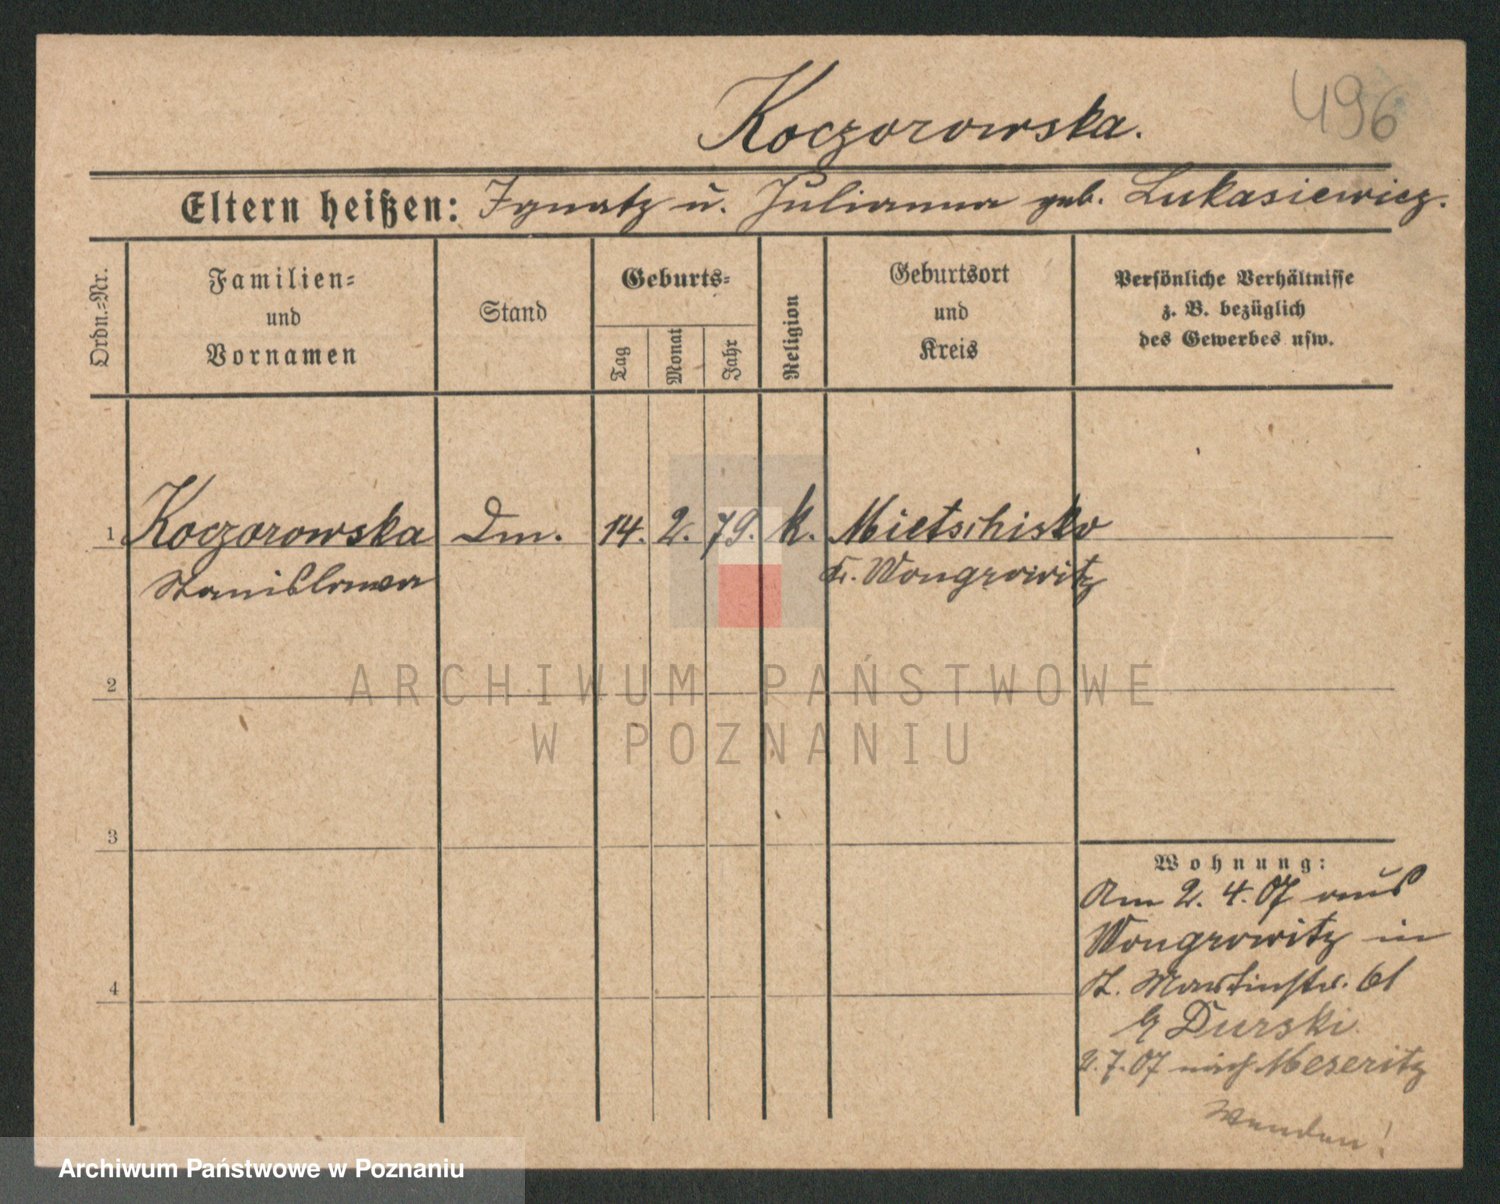 496
Koczorowska.
Eltern heißen: Ignatz u. Julianna geb. Lukasiewicz.
Ordn.-Nr.
Familien-
und
Vornamen
Stand
Geburts-
Tag
Monat
Jahr
Religion
Geburtsort
und
Kreis
Persönliche Verhältnisse
z. B. bezüglich
des Gewerbes usw.
1 Koczorowska Dm. 14. 2. 79. k. Mietschisko
Stanislawa Kr. Wongrowitz
2
ARCHIWUM PAŃSTWOWE
W POZNANIU
3
Wohnung:
Am 2. 4. 07 aus
Wongrowitz in
St. Martinstr. 61
b/ Durski
2. 7. 07 nach Meseritz
Wenden!
4
Archiwum Państwowe w Poznaniu